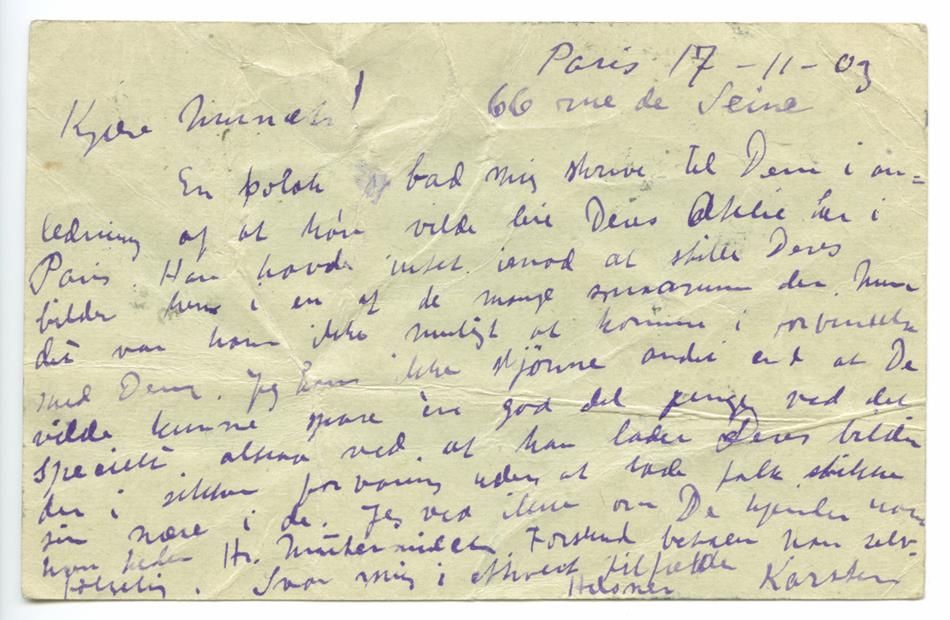 Paris 17-11-03
66 rue de Seine
Kjære Munch!
En polak bad mig skrive til Dem i an=
ledning af at han vilde leie Deres Atelie her i
Paris. Han havde intet imod at stille Deres
bilder hen i en af de mange smaarum der. Men
det var ham ikke muligt at komme i forbindelse
med Dem. Jeg kan ikke skjønne andet end at De
vilde kunne spare en god del penge ved det
specielt, altsaa ved at han lader Deres bilder
der i sikker forvaring uden at lade folk stikke
sin næse i de. Jeg ved ikke om De kjender ham
han heder Hr. Forskud betaler han selv-
følgelig. Svar mig i ethvert tilfælde
Hilsner Karsten